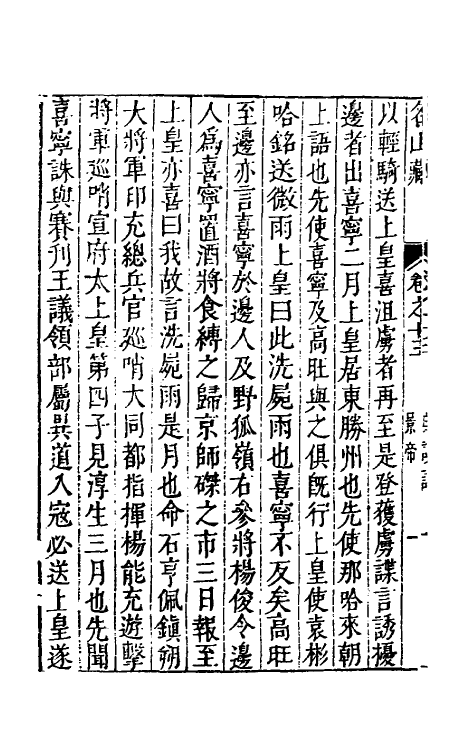 名山藏 卷之十三 典謨記 景帝 一
以輕騎送上皇喜沮虜者再至是登獲虜諜言誘擾
邊者出喜寧二月上皇居東勝州也先使那哈來朝
上語也先使喜寧及高旺與之俱旣行上皇使袁彬
哈銘送微雨上皇曰此洗屍雨也喜寧不反矣高旺
至邊亦言喜寧於邊人及野狐嶺右參將楊俊令邊
人爲喜寧置酒將食縛之歸京師磔之市三日報至
上皇亦喜曰我故言洗屍雨是月也命石亨佩鎮朔
大將軍印充總兵官廵哨大同都指揮楊能充遊擊
將軍廵哨宣府太上皇第四子見淳生三月也先聞
喜寧誅與賽刋王議領部屬異道入寇必送上皇遂